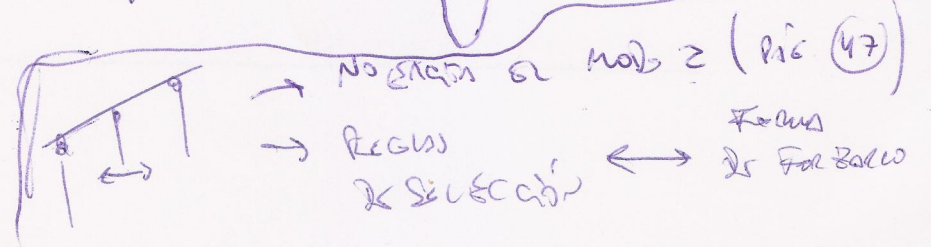 → NO EXCITA EL MODO 2 (PÁG 47)
→ REGLAS
DE SELECCIÓN ↔ FORMA
DE FORZARLO